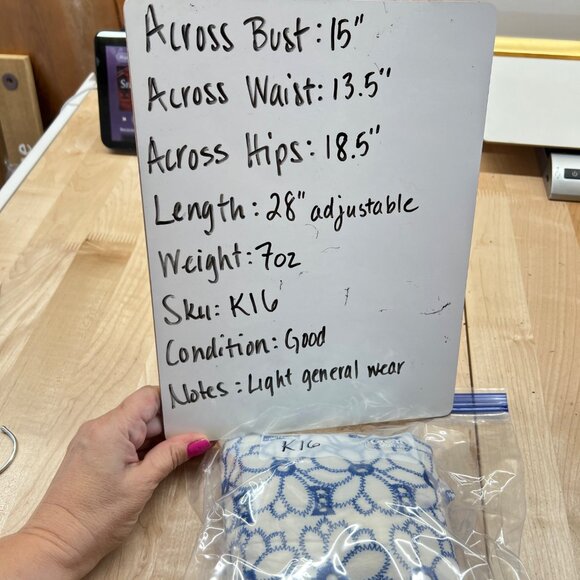 Across Bust: 15"
Across Waist: 13.5"
Across Hips: 18.5"
Length: 28" adjustable
Weight: 7oz
Sku: K16
Condition: Good
Notes: Light general wear
K16